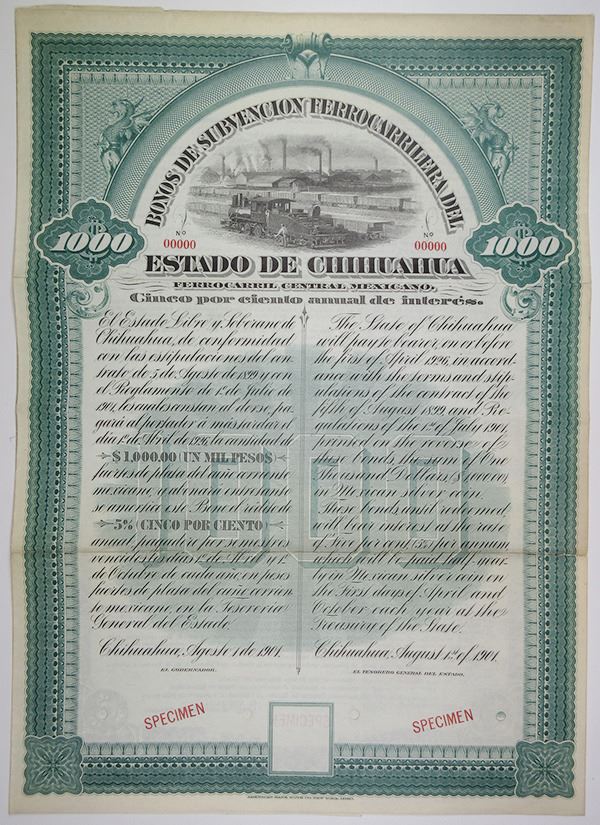 BONOS DE SUBVENCION FERROCARRILERA DEL
Nº
00000
Nº
00000
$
1000
$
1000
ESTADO DE CHIHUAHUA
FERROCARRIL CENTRAL MEXICANO,
Cinco por ciento anual de interés.
El Estado Libre y Soberano de
Chihuahua, de conformidad
con las estipulaciones del con-
trato de 5 de Agosto de 1899 y con
el Reglamento de 1º de Julio de
1901, los cuales constan al dorso, pa-
gará al portador á más tardar el
día 1º de Abril de 1926, la cantidad de
$1,000.00 (UN MIL PESOS)
fuertes de plata del cuño corriente
mexicano, y ganará entretanto
se amortiza este Bono el rédito de
5% (CINCO POR CIENTO)
anual pagadero por semestres
vencidos los días 1º de Abril y 1º
de Octubre de cada año, en pesos
fuertes de plata del cuño corrien-
te mexicano, en la Tesorería
General del Estado.
Chihuahua, Agosto 1 de 1901.
EL GOBERNADOR.
The State of Chihuahua
will pay to bearer, on or before
the first of April 1926, in accord-
ance with the terms and stip-
ulations of the contract of the
fifth of August 1899, and Re-
gulations of the 1st of July 1901,
printed on the reverse of
these bonds, the sum of One
Thousand Dollars ($1,000.00)
in Mexican silver coin.
These bonds until redeemed
will bear interest at the rate
of five per cent (5%) per annum
which will be paid half-year-
ly in Mexican silver coin on
the First days of April and
October each year at the
Treasury of the State.
Chihuahua, August 1st of 1901.
EL TESORERO GENERAL DEL ESTADO.
1000
SPECIMEN
SPECIMEN
SPECIMEN
AMERICAN BANK NOTE CO. NEW YORK.